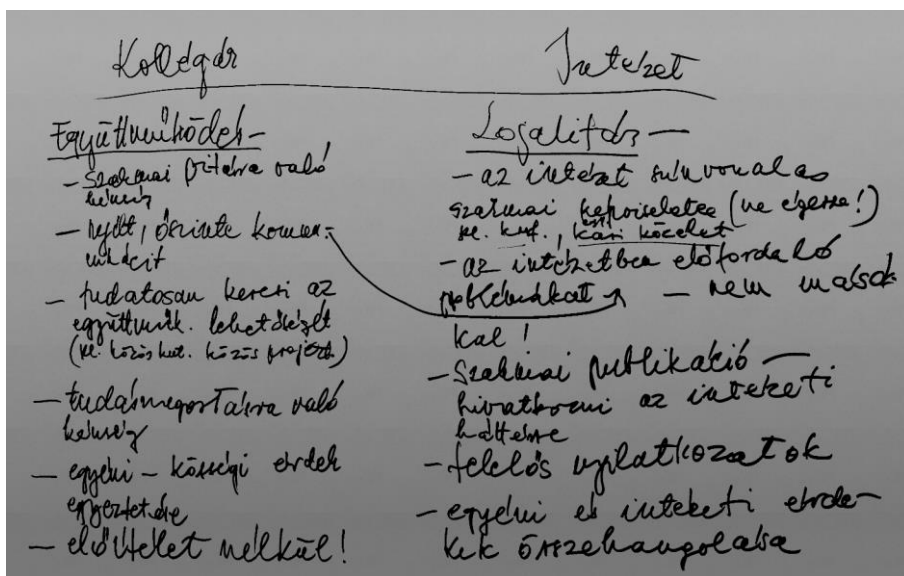 Kollégák
Intézet
Együttműködés –
– szakmai vitára való
készség
– nyílt, őszinte kommu-
nikáció
– tudatosan keresi az
együttműk. lehetőségét
(pl. közös kut. közös projekt.)
– tudásmegosztásra való
készség
– egyéni – közösségi érdek
egyeztetése
– előítélet nélkül!
Lojalitás –
– az intézet színvonalas
szakmai képviselete (ne égesse!)
pl. konf., kari közélet
– az intézetben előforduló
problémákat – nem mások
kal!
– Szakmai publikáció –
hivatkozni az intézeti
háttérre
– felelős nyilatkozatok
– egyéni és intézeti érde-
kek összehangolása